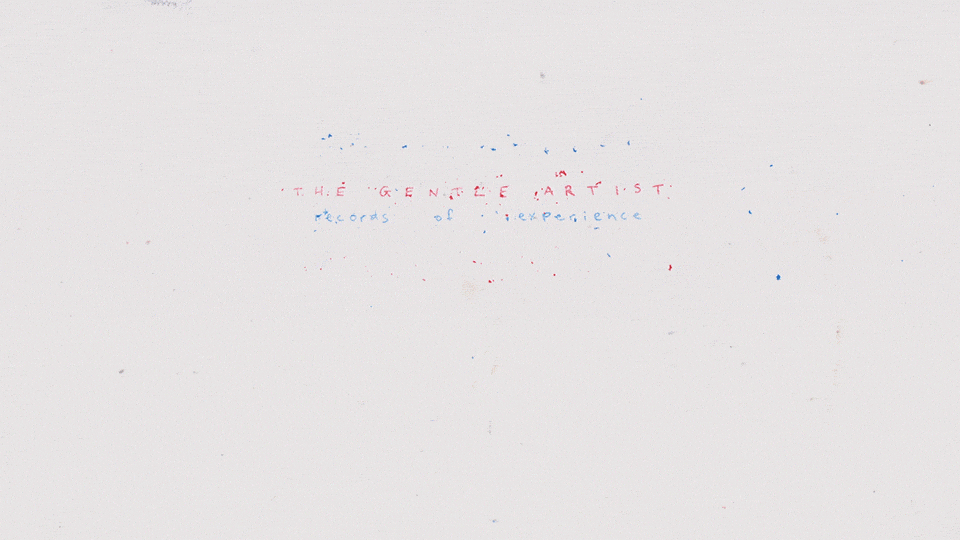 THE GENTLE ARTIST
records of experience